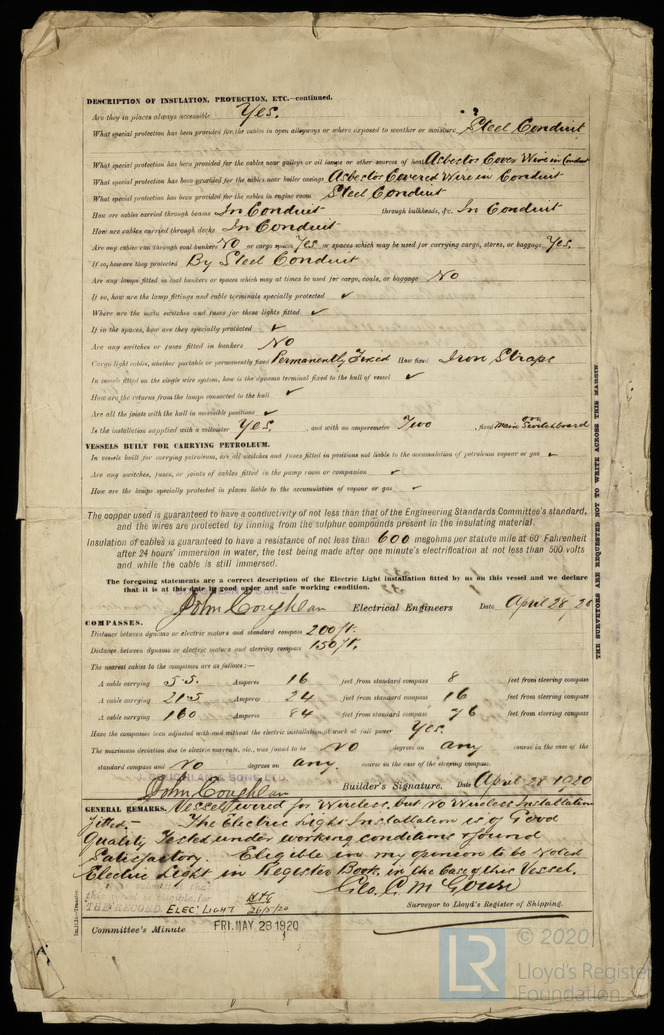 DESCRIPTION OF INSULATION, PROTECTION, ETC.—continued.
Are they in places always accessible Yes.
What special protection has been provided for the cables in open alleyways or where exposed to weather or moisture Steel Conduit
What special protection has been provided for the cables near galleys or oil lamps or other sources of heat Asbestos Cover Wire in Conduit
What special protection has been provided for the cables near boiler casings Asbestos Covered Wire in Conduit
What special protection has been provided for the cables in engine room Steel Conduit
How are cables carried through beams In Conduit through bulkheads, &c. In Conduit
How are cables carried through decks In Conduit
Are any cables run through coal bunkers No or cargo spaces Yes or spaces which may be used for carrying cargo, stores, or baggage Yes.
If so, how are they protected By Steel Conduit
Are any lamps fitted in coal bunkers or spaces which may at times be used for cargo, coals, or baggage No
If so, how are the lamp fittings and cable terminals specially protected ✓
Where are the main switches and fuses for these lights fitted ✓
If in the spaces, how are they specially protected ✓
Are any switches or fuses fitted in bunkers No
Cargo light cables, whether portable or permanently fixed Permanently Fixed How fixed Iron Straps
In vessels fitted on the single wire system, how is the dynamo terminal fixed to the hull of vessel ✓
How are the returns from the lamps connected to the hull ✓
Are all the joints with the hull in accessible positions ✓
Is the installation supplied with a voltmeter Yes. , and with an amperemeter Two , fixed on Main Switchboard
VESSELS BUILT FOR CARRYING PETROLEUM.
In vessels built for carrying petroleum, are all switches and fuses fitted in positions not liable to the accumulation of petroleum vapour or gas ✓
Are any switches, fuses, or joints of cables fitted in the pump room or companion ✓
How are the lamps specially protected in places liable to the accumulation of vapour or gas ✓
The copper used is guaranteed to have a conductivity of not less than that of the Engineering Standards Committee's standard,
and the wires are protected by tinning from the sulphur compounds present in the insulating material.
Insulation of cables is guaranteed to have a resistance of not less than 600 megohms per statute mile at 60° Fahrenheit
after 24 hours' immersion in water, the test being made after one minute's electrification at not less than 500 volts
and while the cable is still immersed.
The foregoing statements are a correct description of the Electric Light installation fitted by us on this vessel and we declare
that it is at this date in good order and safe working condition.
John Coughlan Electrical Engineers Date April 28, 20
COMPASSES.
Distance between dynamo or electric motors and standard compass 200 ft.
Distance between dynamo or electric motors and steering compass 150 ft.
The nearest cables to the compasses are as follows:—
A cable carrying 5.5. Amperes 16 feet from standard compass 8 feet from steering compass
A cable carrying 21.5 Amperes 24 feet from standard compass 16 feet from steering compass
A cable carrying 160 Amperes 84 feet from standard compass 76 feet from steering compass
Have the compasses been adjusted with and without the electric installation at work at full power Yes.
The maximum deviation due to electric currents, etc., was found to be No degrees on any course in the case of the
standard compass and No degrees on any. course in the case of the steering compass.
J. COUGHLAN & SONS, LTD.
John Coughlan Builder's Signature. Date April 28 1920
GENERAL REMARKS. Vessel wired for Wireless, but No Wireless Installation
fitted,— The Electric Light Installation is of Good
Quality Tested under working conditions & found
Satisfactory. Eligible in my opinion to be Noted
Electric Light in Register Book, in the Case of this Vessel.
It is submitted that
eligible for
THE RECORD. ELEC. LIGHT
26/5/20
Surveyor to Lloyd's Register of Shipping.
Committee's Minute FRI. MAY. 28 1920
THE SURVEYORS ARE REQUESTED NOT TO WRITE ACROSS THIS MARGIN
LR © 2020
Lloyd's Register
Foundation